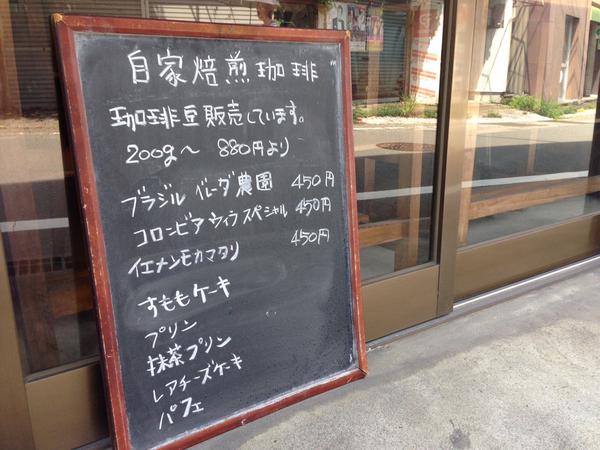 自家焙煎珈琲
珈琲豆販売しています。
200g〜 880円より
ブラジル バレーダ農園 450円
コロンビア ウィラスペシャル 450円
イエメンモカマタリ 450円
すももケーキ
プリン
抹茶プリン
レアチーズケーキ
パフェ